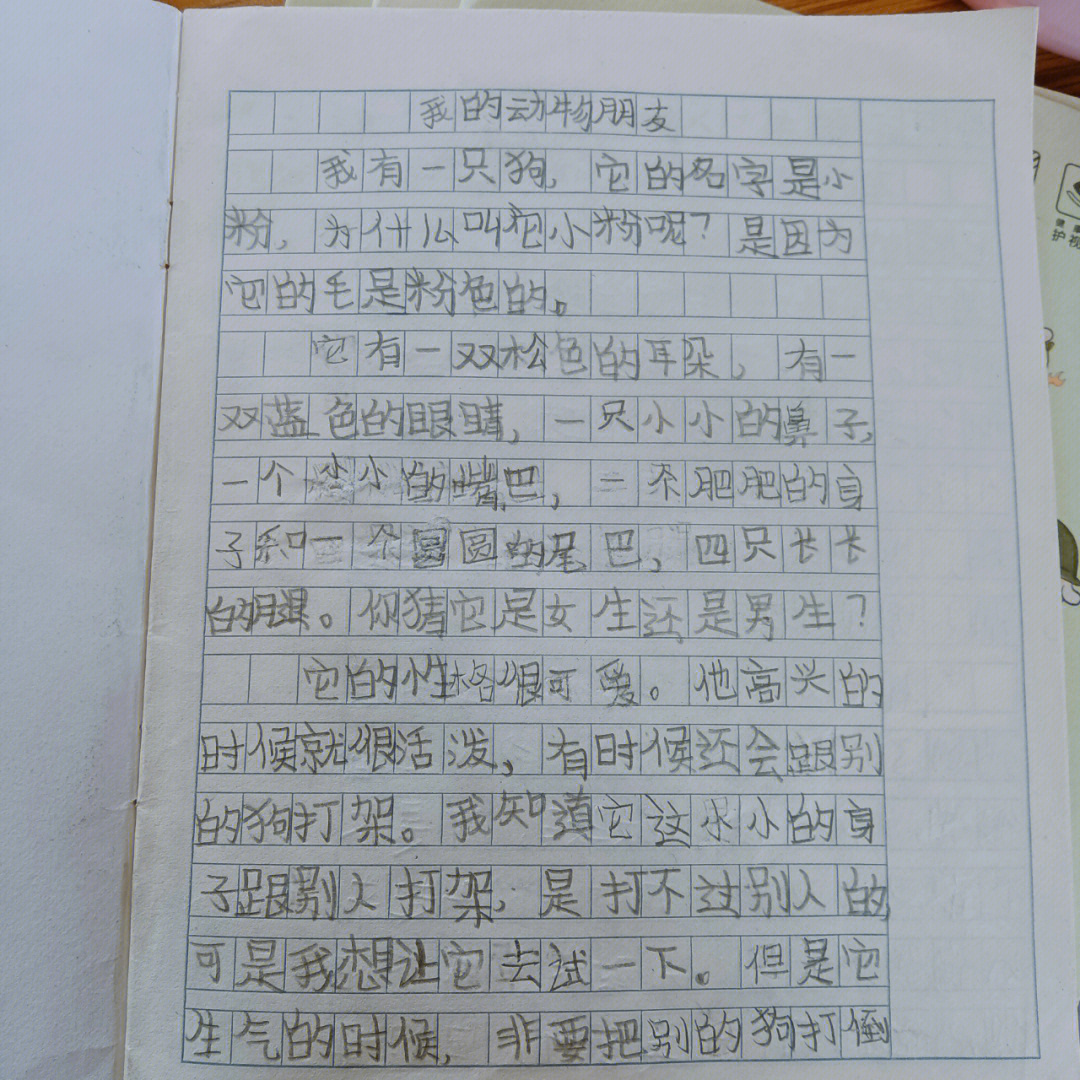 我的动物朋友
我有一只狗，它的名字是小
粉，为什么叫它小粉呢？是因为
它的毛是粉色的。
它有一双松色的耳朵，有一
双蓝色的眼睛，一只小小的鼻子，
一个小小的嘴巴，一个肥肥的身
子和一个圆圆的尾巴，四只长长
的腿。你猜它是女生还是男生？
它的性格很可爱。他高兴的
时候就很活泼，有时候还会跟别
的狗打架。我知道它这小小的身
子跟别人打架，是打不过别人的，
可是我想让它去试一下。但是它
生气的时候，非要把别的狗打倒
护视